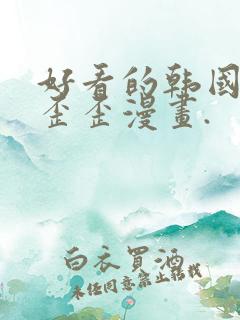 好看的韩国
歪歪漫畫.
白衣買酒
未经同意禁止转载